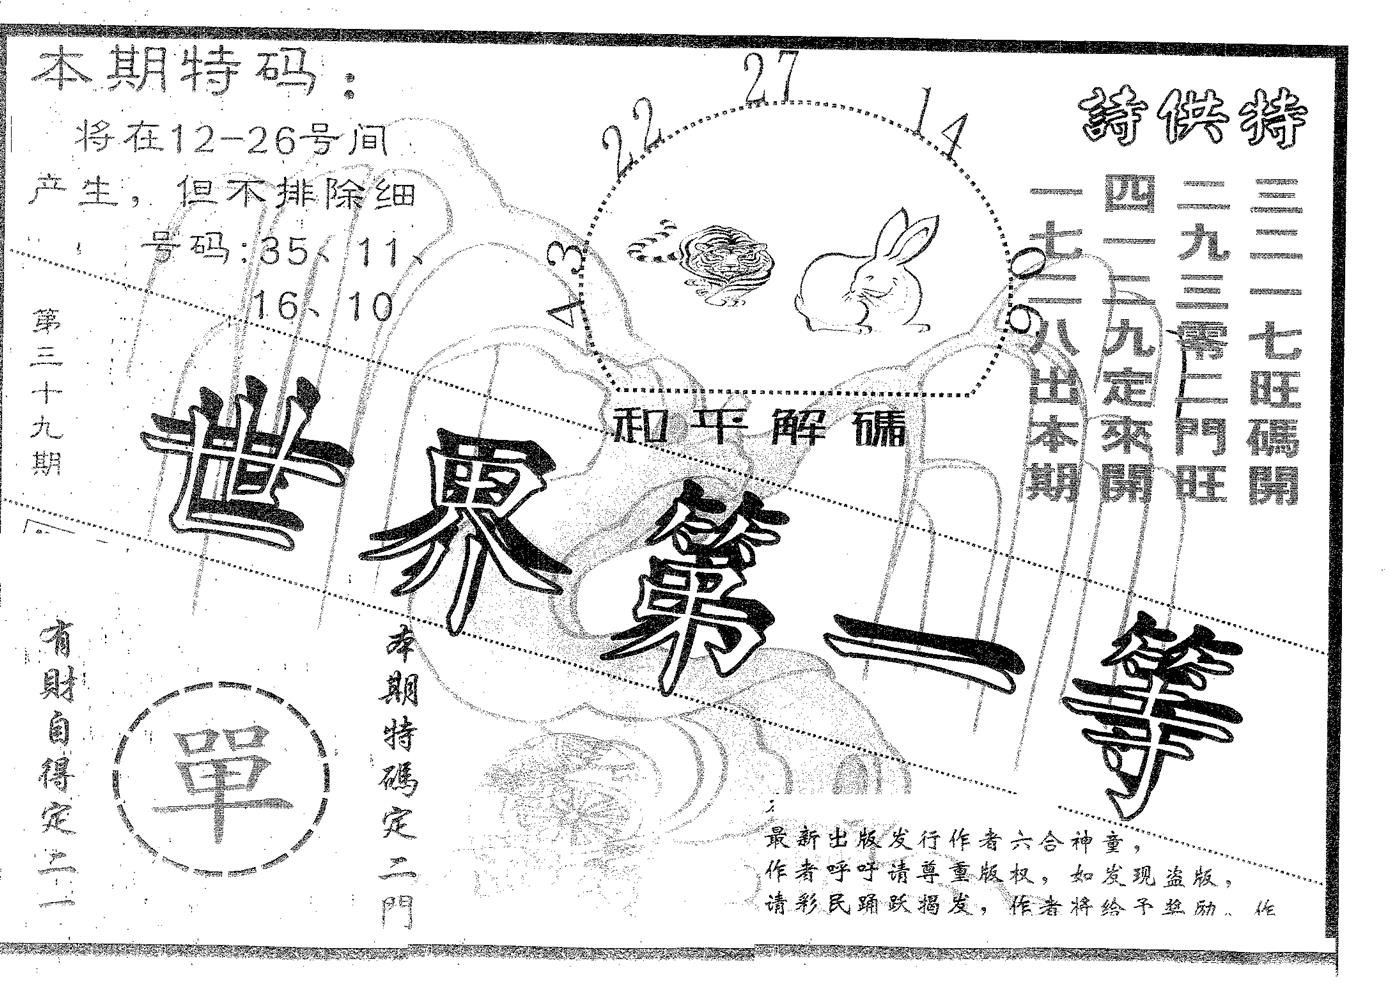 本期特码：
将在12-26号间
产生，但不排除细
号码：35、11、
16、10
第三十九期
22
27
14
43
09
和平解碼
詩供特
三三一七旺碼開
二九三零二門旺
四一二九定來開
一七二八出本期
世界第一等
有財自得定二一
單
本期特碼定二門
最新出版发行作者六合神童，
作者呼吁请尊重版权，如发现盗版，
请彩民踊跃揭发，作者将给予奖励。作